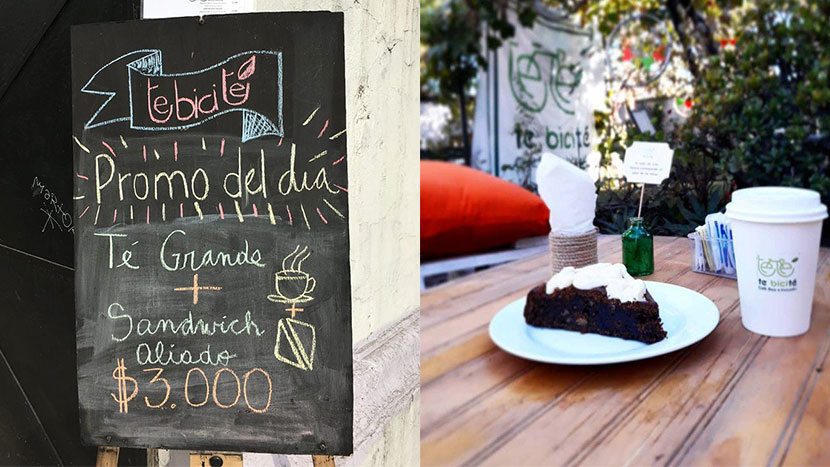 te bicité
Promo del día
Té Grande
+
Sandwich
aliado
$3.000
te bicité
te bicité